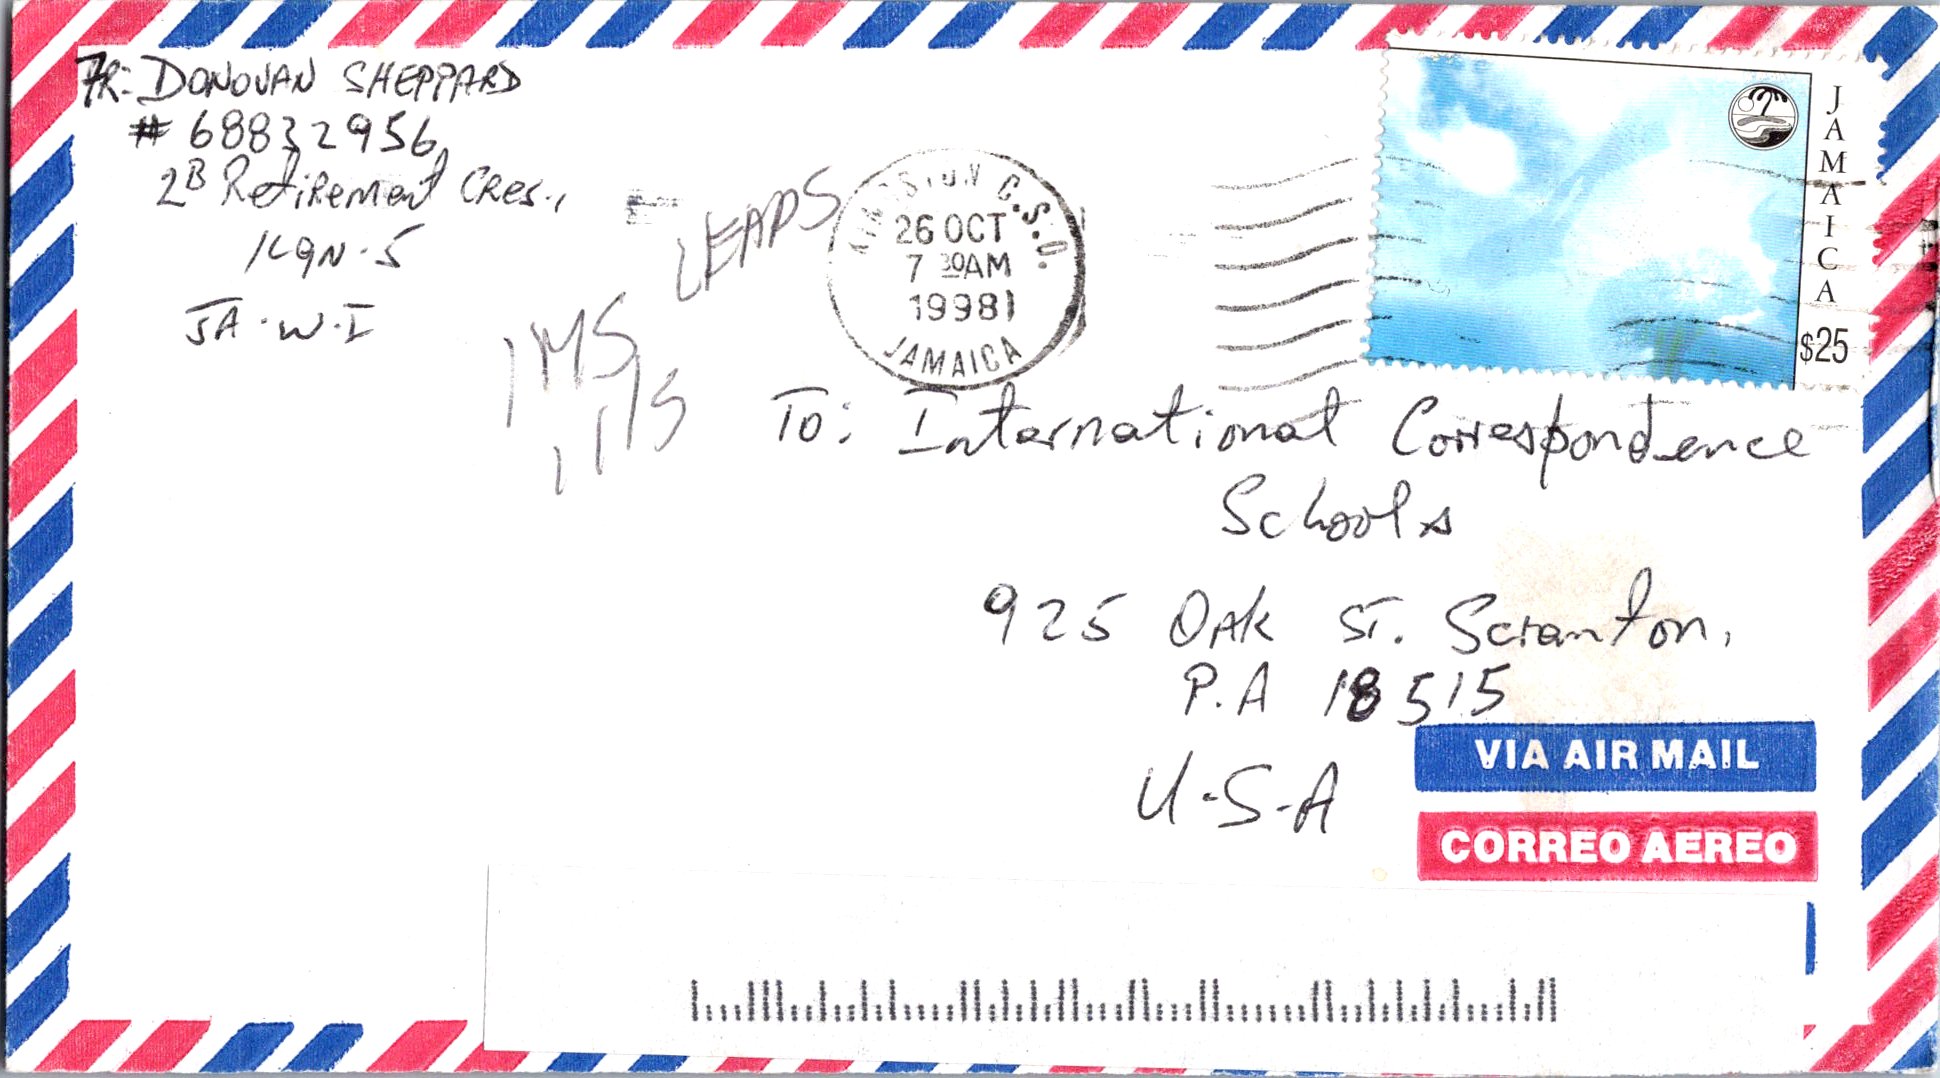 FR: DONOVAN SHEPPARD
# 68832956,
2B Retirement Cres.,
KGN. 5
JA. W. I
LEADS
KINGSTON C.S.O.
26 OCT
7 30AM
19981
JAMAICA
JAMAICA
$25
To: International Correspondence
Schools
925 Oak ST. Scranton,
P.A 18515
U.S.A
VIA AIR MAIL
CORREO AEREO